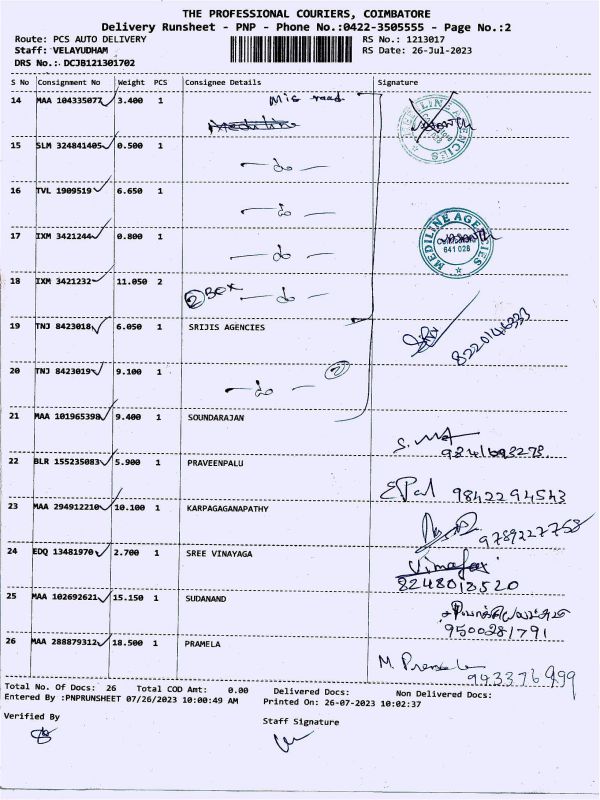 THE PROFESSIONAL COURIERS, COIMBATORE
Delivery Runsheet - PNP - Phone No.:0422-3505555 - Page No.:2
Route: PCS AUTO DELIVERY RS No.: 1213017
Staff: VELAYUDHAM RS Date: 26-Jul-2023
DRS No.: DCJB121301702
S No Consignment No Weight PCS Consignee Details Signature
14 MAA 104335077 3.400 1 Mis road
Mediline
MEDILINE AGENCIES
15 SLM 324841405 0.500 1 - do -
16 TVL 1909519 6.650 1 - do -
17 IXM 3421244 0.800 1 - do -
MEDILINE AGENCIES
641 028
18 IXM 3421232 11.050 2 2 BOX - do -
19 TNJ 8423018 6.050 1 SRIJIS AGENCIES
20 TNJ 8423019 9.100 1 - do - 2
21 MAA 101965398 9.400 1 SOUNDARAJAN
22 BLR 155235083 5.900 1 PRAVEENPALU
9842294543
23 MAA 294912210 10.100 1 KARPAGAGANAPATHY
9789227758
24 EDQ 13481970 2.700 1 SREE VINAYAGA
8248013520
25 MAA 102692621 15.150 1 SUDANAND
9500281791
26 MAA 288879312 18.500 1 PRAMELA
M. Pramela
Total No. Of Docs: 26 Total COD Amt: 0.00 Delivered Docs: Non Delivered Docs:
Entered By :PNPRUNSHEET 07/26/2023 10:00:49 AM Printed On: 26-07-2023 10:02:37
Verified By
Staff Signature